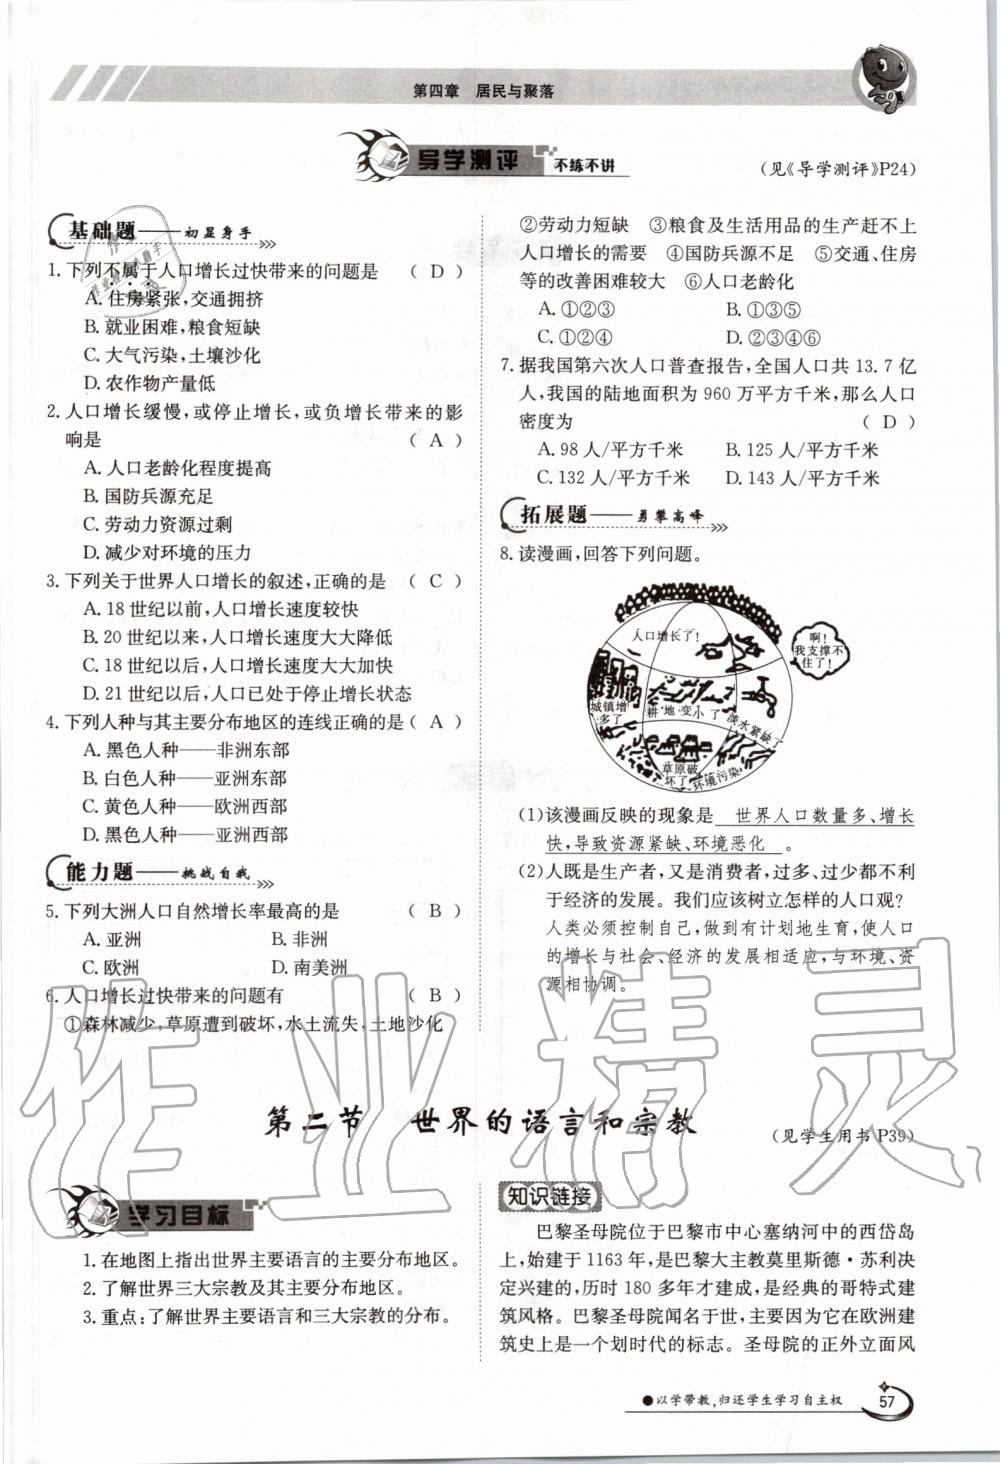 第四章 居民与聚落
导学测评 不练不讲
(见《导学测评》P24)
基础题——初显身手
1. 下列不属于人口增长过快带来的问题是 ( D )
A. 住房紧张,交通拥挤
B. 就业困难,粮食短缺
C. 大气污染,土壤沙化
D. 农作物产量低
2. 人口增长缓慢,或停止增长,或负增长带来的影
响是 ( A )
A. 人口老龄化程度提高
B. 国防兵源充足
C. 劳动力资源过剩
D. 减少对环境的压力
3. 下列关于世界人口增长的叙述,正确的是 ( C )
A. 18 世纪以前,人口增长速度较快
B. 20 世纪以来,人口增长速度大大降低
C. 18 世纪以后,人口增长速度大大加快
D. 21 世纪以后,人口已处于停止增长状态
4. 下列人种与其主要分布地区的连线正确的是 ( A )
A. 黑色人种——非洲东部
B. 白色人种——亚洲东部
C. 黄色人种——欧洲西部
D. 黑色人种——亚洲西部
能力题——挑战自我
5. 下列大洲人口自然增长率最高的是 ( B )
A. 亚洲 B. 非洲
C. 欧洲 D. 南美洲
6. 人口增长过快带来的问题有 ( B )
①森林减少,草原遭到破坏,水土流失,土地沙化
②劳动力短缺 ③粮食及生活用品的生产赶不上
人口增长的需要 ④国防兵源不足 ⑤交通、住房
等的改善困难较大 ⑥人口老龄化
A. ①②③ B. ①③⑤
C. ①②④ D. ②③④⑥
7. 据我国第六次人口普查报告,全国人口共 13.7 亿
人,我国的陆地面积为 960 万平方千米,那么人口
密度为 ( D )
A. 98 人/平方千米 B. 125 人/平方千米
C. 132 人/平方千米 D. 143 人/平方千米
拓展题——勇攀高峰
8. 读漫画,回答下列问题。
人口增长了!
啊!
我支撑不
住了!
城镇增
多了
耕地变小了
淡水紧缺了
草原破
坏了
环境污染
(1)该漫画反映的现象是 世界人口数量多、增长
快,导致资源紧缺、环境恶化 。
(2)人既是生产者,又是消费者,过多、过少都不利
于经济的发展。我们应该树立怎样的人口观?
人类必须控制自己,做到有计划地生育,使人口
的增长与社会、经济的发展相适应,与环境、资
源相协调。
第二节 世界的语言和宗教
(见学生用书 P39)
学习目标
1. 在地图上指出世界主要语言的主要分布地区。
2. 了解世界三大宗教及其主要分布地区。
3. 重点:了解世界主要语言和三大宗教的分布。
知识链接
巴黎圣母院位于巴黎市中心塞纳河中的西岱岛
上,始建于 1163 年,是巴黎大主教莫里斯德·苏利决
定兴建的,历时 180 多年才建成,是经典的哥特式建
筑风格。巴黎圣母院闻名于世,主要因为它在欧洲建
筑史上是一个划时代的标志。圣母院的正外立面风
●以学带教,归还学生学习自主权 57
作业精灵